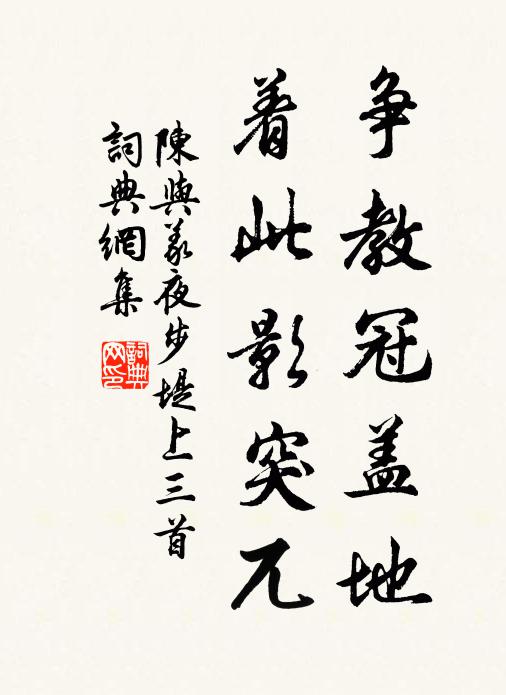 争教冠盖地
着此影突兀
陳與義夜步堤上三首
詞典網集
詞典网印